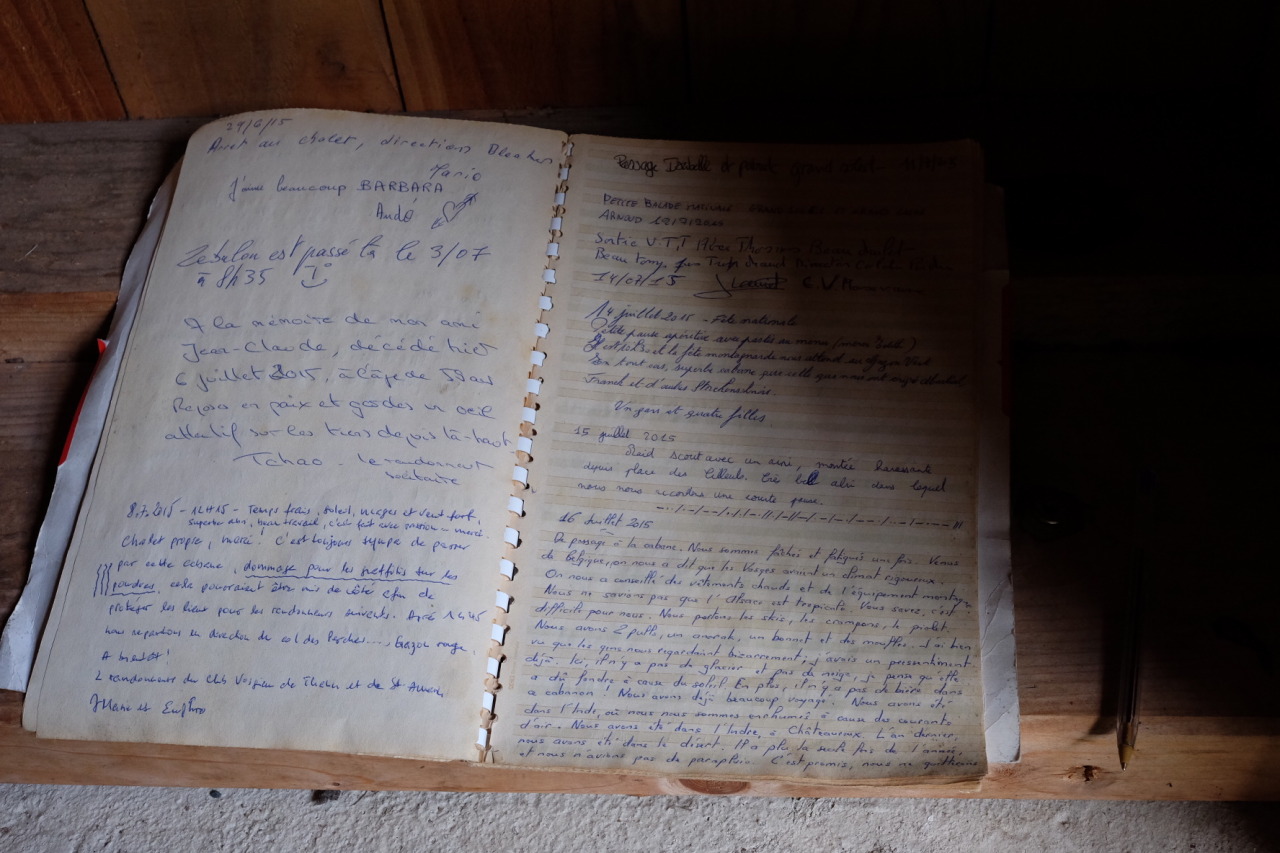 29/6/15
Arret au chalet, direction
Mario
J'aime beaucoup BARBARA
André
Zebulon est passé là le 3/07
à 8h35
A la mémoire de mon ami
Jean-Claude, décédé hier
6 juillet 2015, à l'âge de 59 ans
Repose en paix et gardes un oeil
attentif sur les tiens depuis là-haut
Tchao - le randonneur
solitaire
8.7.2015 - 14H15 - Temps frais, soleil, nuages et vent fort,
superbe abri, beau travail, c'est fait avec passion - merci.
Chalet propre, merci! C'est toujours sympa de passer
par cette cabane, dommage pour les graffitis sur les
poutres, cela pourraient être mis de côté afin de
protéger les lieux pour les randonneurs suivants. Après 14h45
nous repartons en direction du col des Perches...., gazon rouge.
A bientôt!
2 randonneurs du Club Vosgien de Thann et de St Amarin.
Passage Isabelle et
PETITE BALADE MATINALE
ARNOUD 12/7/2015
Sortie V.T.T
Beau temps pas Trop chaud
14/07/15
14 juillet 2015 - Fête nationale
Petite pause apéritive avec pastis au menu
et la fête montagnarde nous attend au Gazon Vert
En tout cas, superbe cabane
Franck et d'autres
Un gars et quatre filles.
15 juillet 2015
Raid scout avec un ami, montée harassante
depuis place des tilleuls. Très bel abri dans lequel
nous nous accordons une courte pause.
16 Juillet 2015
De passage à la cabane. Nous sommes fâchés et fatigués une fois. Venus
de Belgique, on nous a dit que les Vosges avaient un climat rigoureux.
On nous a conseillé des vêtements chauds et de l'équipement montagne
Nous ne savions pas que l'Alsace est tropicale. Vous savez, c'est
difficile pour nous. Nous portons les skis, les crampons, le piolet.
Nous avons 2 pulls, un anorak, un bonnet et des mouffles. J'ai bien
vu que les gens nous regardaient bizarrement, j'avais un pressentiment
déjà. Ici, il n'y a pas de glacier et pas de neige, je pense qu'elle
a dû fondre à cause du soleil. En plus, il n'y a pas de bière dans
ce cabanon! Nous avons déjà beaucoup voyagé. Nous avons été
dans l'Inde, où nous nous sommes enrhumés à cause des courants
d'air. Nous avons été dans l'Indre, à Châteauroux. L'an dernier,
nous avons été dans le désert. Il a plu la seule fois de l'année,
et nous n'avions pas de parapluie. C'est promis, nous ne quitterons